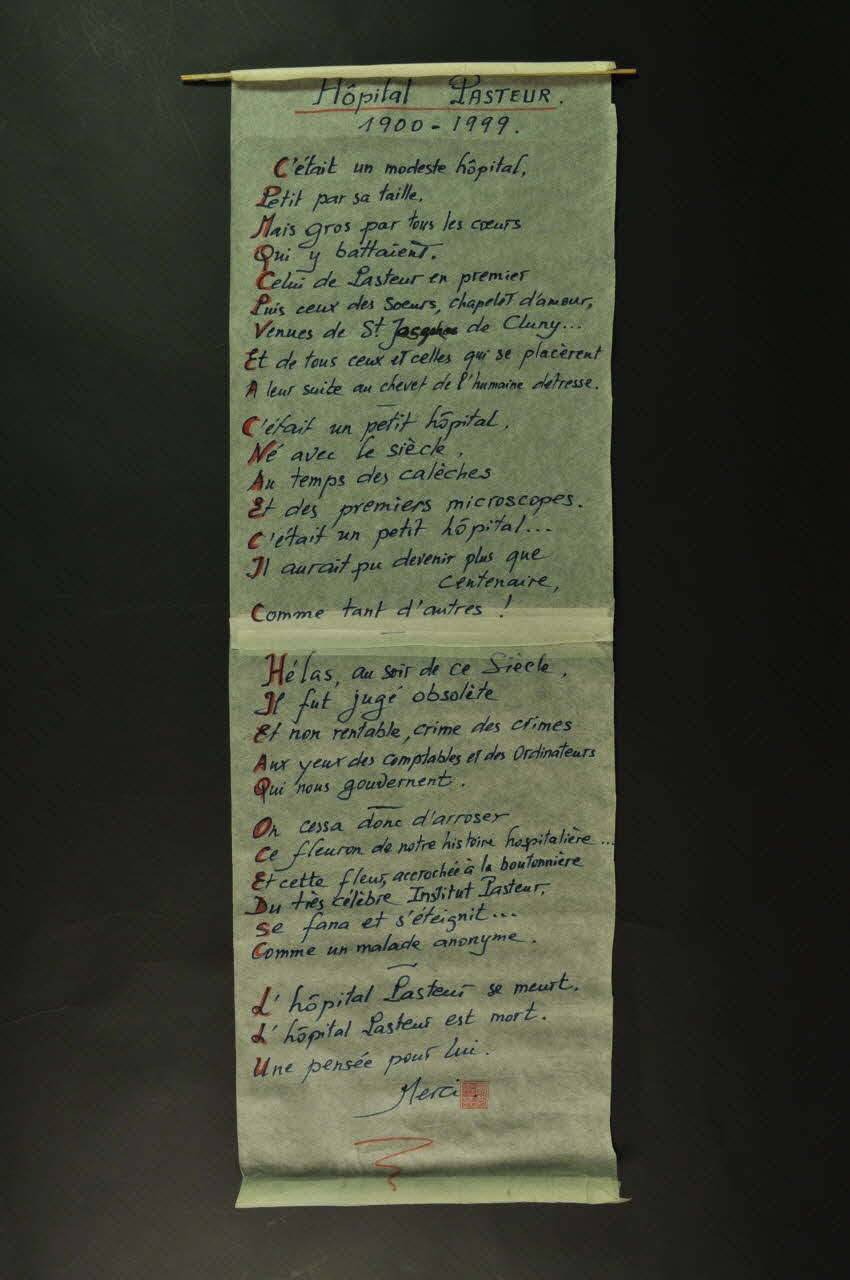 Hôpital PASTEUR.
1900-1999.
C'était un modeste hôpital,
Petit par sa taille,
Mais gros par tous les cœurs
Qui y battaient.
Celui de Pasteur en premier
Puis ceux des Soeurs, chapelet d'amour,
Venues de St de Cluny...
Et de tous ceux et celles qui se placèrent
A leur suite au chevet de l'humaine detresse.
C'était un petit hôpital,
Né avec le siècle,
Au temps des calèches
Et des premiers microscopes.
C'était un petit hôpital...
Il aurait pu devenir plus que
Centenaire,
Comme tant d'autres !
Hélas, au soir de ce Siècle,
Il fut jugé obsolète
Et non rentable, crime des crimes
Aux yeux des comptables et des Ordinateurs
Qui nous gouvernent.
On cessa donc d'arroser
Ce fleuron de notre histoire hospitalière...
Et cette fleur, accrochée à la boutonnière
Du très célèbre Institut Pasteur,
Se fana et s'éteignit...
Comme un malade anonyme.
L'hôpital Pasteur se meurt.
L'hôpital Pasteur est mort.
Une pensée pour lui.
Merci.